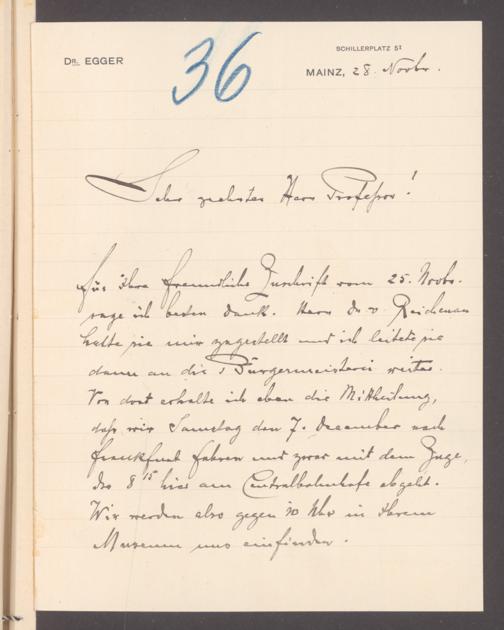 DR. EGGER
36
SCHILLERPLATZ 5
MAINZ, 28. Novbr.
Sehr geehrter Herr Professor!
Für Ihre freundliche Zuschrift vom 25. Novbr.
sage ich besten Dank. Herr Dr. v. Reichenau
hatte sie mir zugestellt und ich leitete sie
dann an die Bürgermeisterei weiter.
Von dort erhalte ich eben die Mittheilung,
daß wir Samstag den 7. December nach
Frankfurt fahren und zwar mit dem Zuge,
der 8 15 hier am Centralbahnhofe abgeht.
Wir werden also gegen 10 Uhr in Ihrem
Museum uns einfinden.